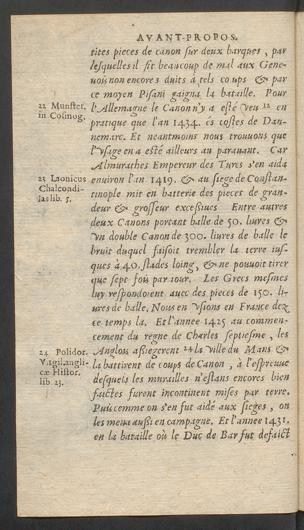 AVANT-PROPOS.
tites pieces de canon sur deux barques, par
lesquelles il fit beaucoup de mal aux Gene-
uois non encores duits à tels coups & par
ce moyen Pisani gaigna la bataille. Pour
22 Munster.
in Cosmog.
l'Allemagne le Canon n'y a esté veu 22 en
pratique que l'an 1434. és costes de Dan-
nemarc. Et neantmoins nous trouuons que
l'vsage en a esté ailleurs au parauant. Car
Almurathes Empereur des Turcs s'en aida
23 Laonicus
Chalcondi-
las lib. 5.
enuiron l'an 1419. & au siege de Constan-
tinople mit en batterie des pieces de gran-
deur & grosseur excessiues Entre autres
deux Canons portant balle de 50. liures &
vn double Canon de 300. liures de balle le
bruit duquel faisoit trembler la terre ius-
ques à 40. stades loing, & ne pouuoit tirer
que sept fois par iour. Les Grecs mesmes
luy respondoient auec des pieces de 150. li-
ures de balle. Nous en vsions en France dez
ce temps la. Et l'année 1425 au commen-
cement du regne de Charles septiesme, les
24 Polidor.
Virgil. angli-
cæ Histor.
lib. 23.
Anglois assiegerent 24 la ville du Mans &
la battirent de coups de Canon, à l'espreuue
desquels les murailles n'estans encores bien
faictes furent incontinent mises par terre.
Puis comme on s'en fut aidé aux sieges, on
les mena aussi en campagne. Et l'année 1431.
en la bataille où le Duc de Bar fut defaict